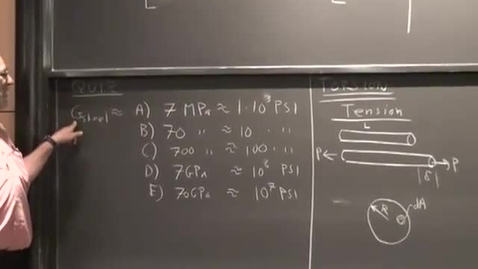 QUIZ
G_steel ≈ A) 7 MPa ≈ 1·10³ PSI
B) 70 " ≈ 10 " "
C) 700 " ≈ 100 " "
D) 7GPa ≈ 10⁶ PSI
E) 70GPa ≈ 10⁷ PSI
TORSION
Tension
L
P P
δ
R dA